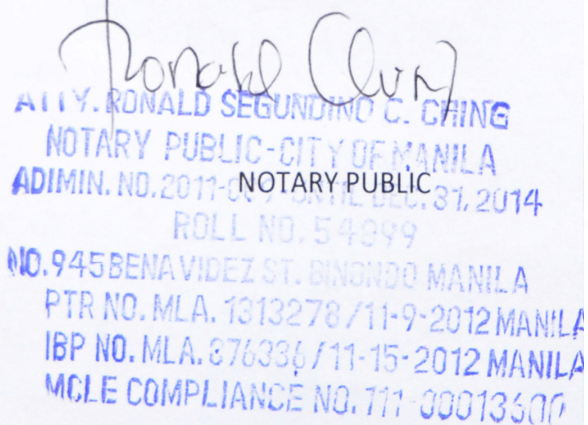 Ronald Ching
ATTY. RONALD SEGUNDINO C. CHING
NOTARY PUBLIC-CITY OF MANILA
ADIMIN. NO. 2011- UNTIL DEC. 31, 2014
NOTARY PUBLIC
ROLL NO. 54899
NO. 945 BENAVIDEZ ST. BINONDO MANILA
PTR NO. MLA. 1313278/11-9-2012 MANILA
IBP NO. MLA. 876336/11-15-2012 MANILA
MCLE COMPLIANCE NO. 111-00013600